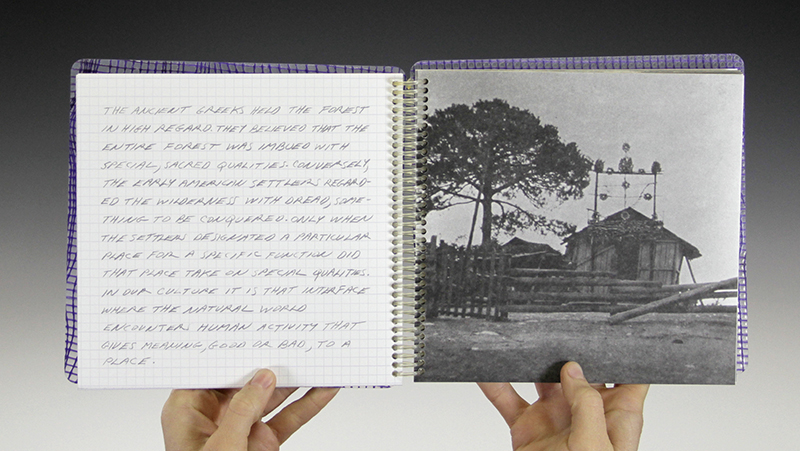 THE ANCIENT GREEKS HELD THE FOREST
IN HIGH REGARD. THEY BELIEVED THAT THE
ENTIRE FOREST WAS IMBUED WITH
SPECIAL, SACRED QUALITIES. CONVERSELY,
THE EARLY AMERICAN SETTLERS REGARD-
ED THE WILDERNESS WITH DREAD, SOME-
THING TO BE CONQUERED. ONLY WHEN
THE SETTLERS DESIGNATED A PARTICULAR
PLACE FOR A SPECIFIC FUNCTION DID
THAT PLACE TAKE ON SPECIAL QUALITIES.
IN OUR CULTURE IT IS THAT INTERFACE
WHERE THE NATURAL WORLD
ENCOUNTERS HUMAN ACTIVITY THAT
GIVES MEANING, GOOD OR BAD, TO A
PLACE.